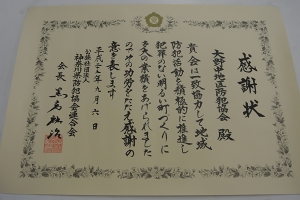 感謝状
大野北地区防犯協会 殿
貴会は一致協力して地域
防犯活動を積極的に推進し
犯罪のない明るい町づくりに
多大の業績をあげられました
のでその功労をたたえ感謝の
意を表します
平成二十七年九月六日
公益社団法人
神奈川県防犯協会連合会
会長